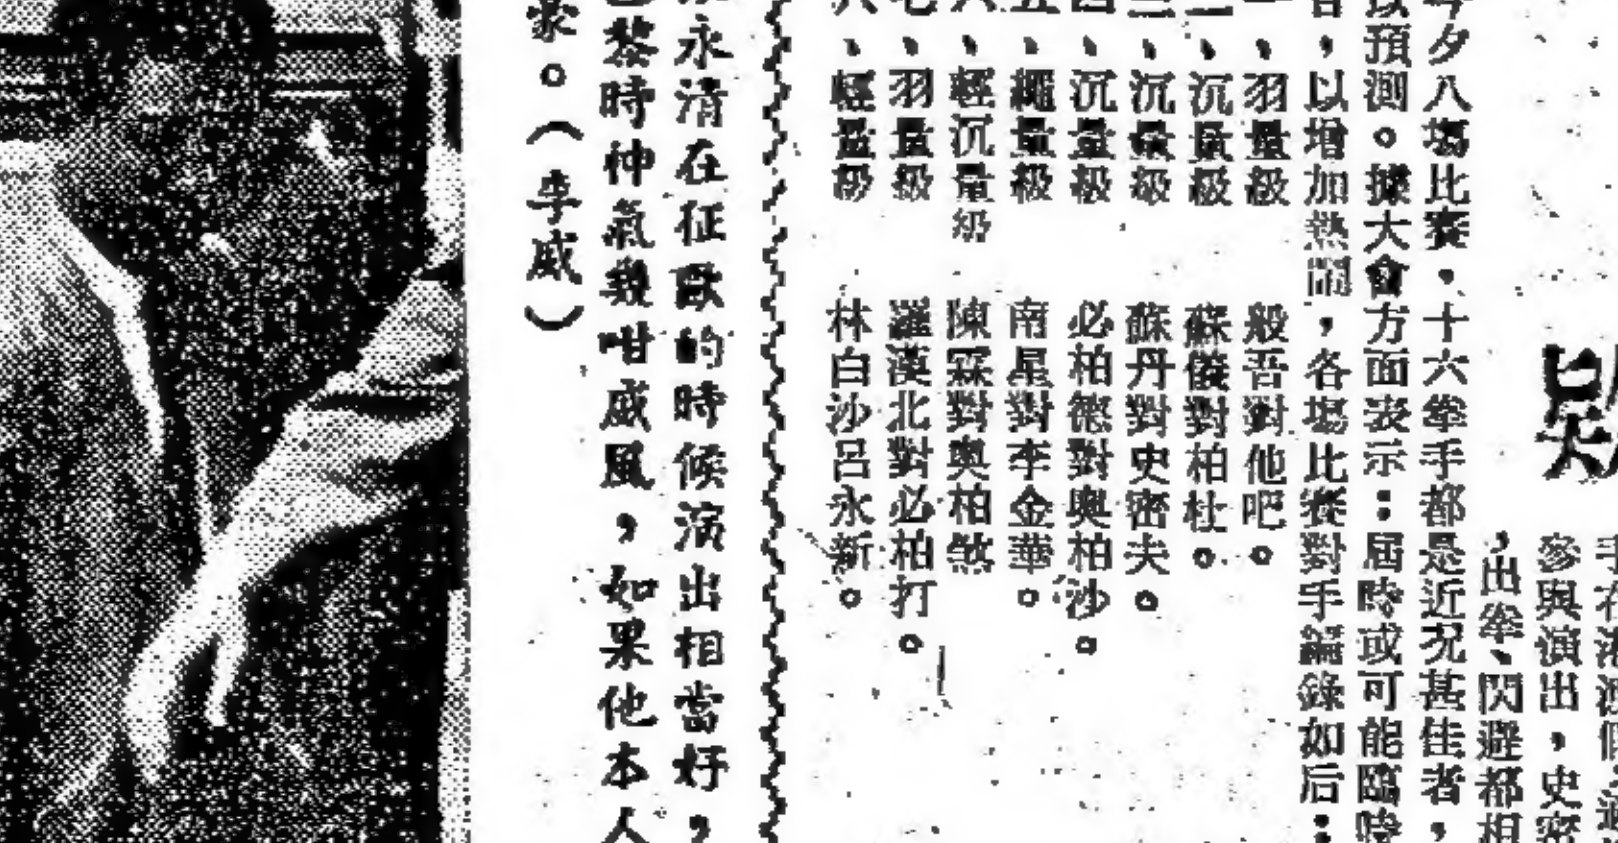 手在港
參與演出，史密
，出拳、閃避都相
今夕八塲比賽，十六拳手都是近況甚佳者，
以預測。據大會方面表示：屆時或可能臨時
，以增加熱鬧，各塲比賽對手編錄如后：
一、羽量級 般吾對他吧。
二、沉量級 蘇俊對柏杜。
三、沉量級 蘇丹對史密夫。
四、沉量級 必柏德對奧柏沙。
五、繩量級 南星對李金華。
六、輕沉量級 陳冧對奧柏煞
七、羽量級 羅漢北對必柏打。
八、輕量級 林白沙呂永新。
永清在征歐的時候演出相當好，
黎時神氣幾咁威風，如果他本人
豪。（李威）